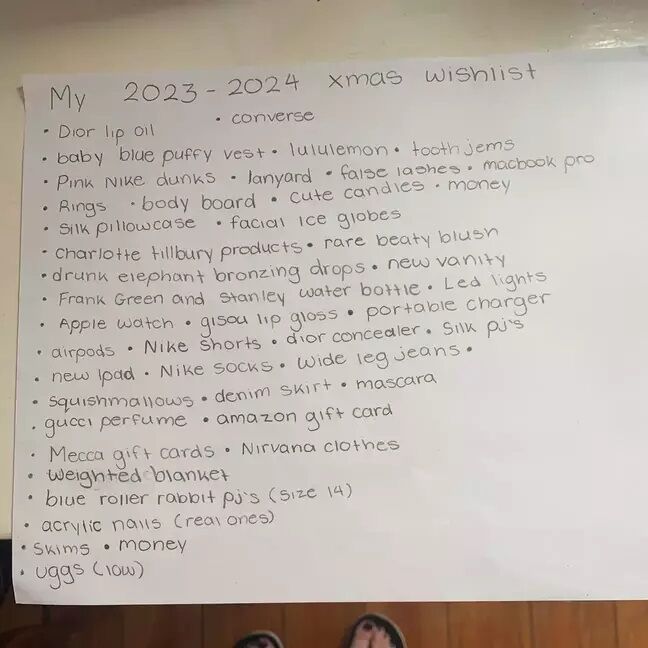 My 2023-2024 xmas wishlist
• Dior lip oil • converse
• baby blue puffy vest • lululemon • tooth jems
• Pink Nike dunks • lanyard • false lashes • macbook pro
• Rings • body board • cute candles • money
• Silk pillowcase • facial ice globes
• charlotte tillbury products • rare beaty blush
• drunk elephant bronzing drops • new vanity
• Frank Green and Stanley water bottle • Led lights
• Apple watch • gisou lip gloss • portable charger
• airpods • Nike shorts • dior concealer • Silk pj's
• new Ipad • Nike socks • wide leg jeans •
• squishmallows • denim skirt • mascara
• gucci perfume • amazon gift card
• Mecca gift cards • Nirvana clothes
• weighted blanket
• blue roller rabbit pj's (size 14)
• acrylic nails (real ones)
• Skims • money
• uggs (low)